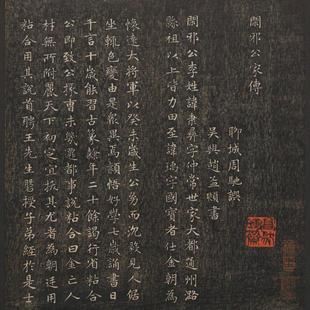 閑邪公家傳
聊城周馳譔
吳興趙孟頫書
閑邪公李姓諱秉彝字仲常世家大都通州潞
縣祖以上皆力田至諱瑀字國寶者仕金朝為
懷遠大將軍以癸未歲生公而沈毅見人倨
坐輒色變由是衆異焉穎悟好學七歲誦書日
千言十歲能習古篆隸年二十餘謁行省粘合
公即致公掾曹未幾遷都事說粘合曰金亡人
材無所附麗天下初定宜拔其尤為朝廷用
粘合用其說首聘王先生授子弟經於是士